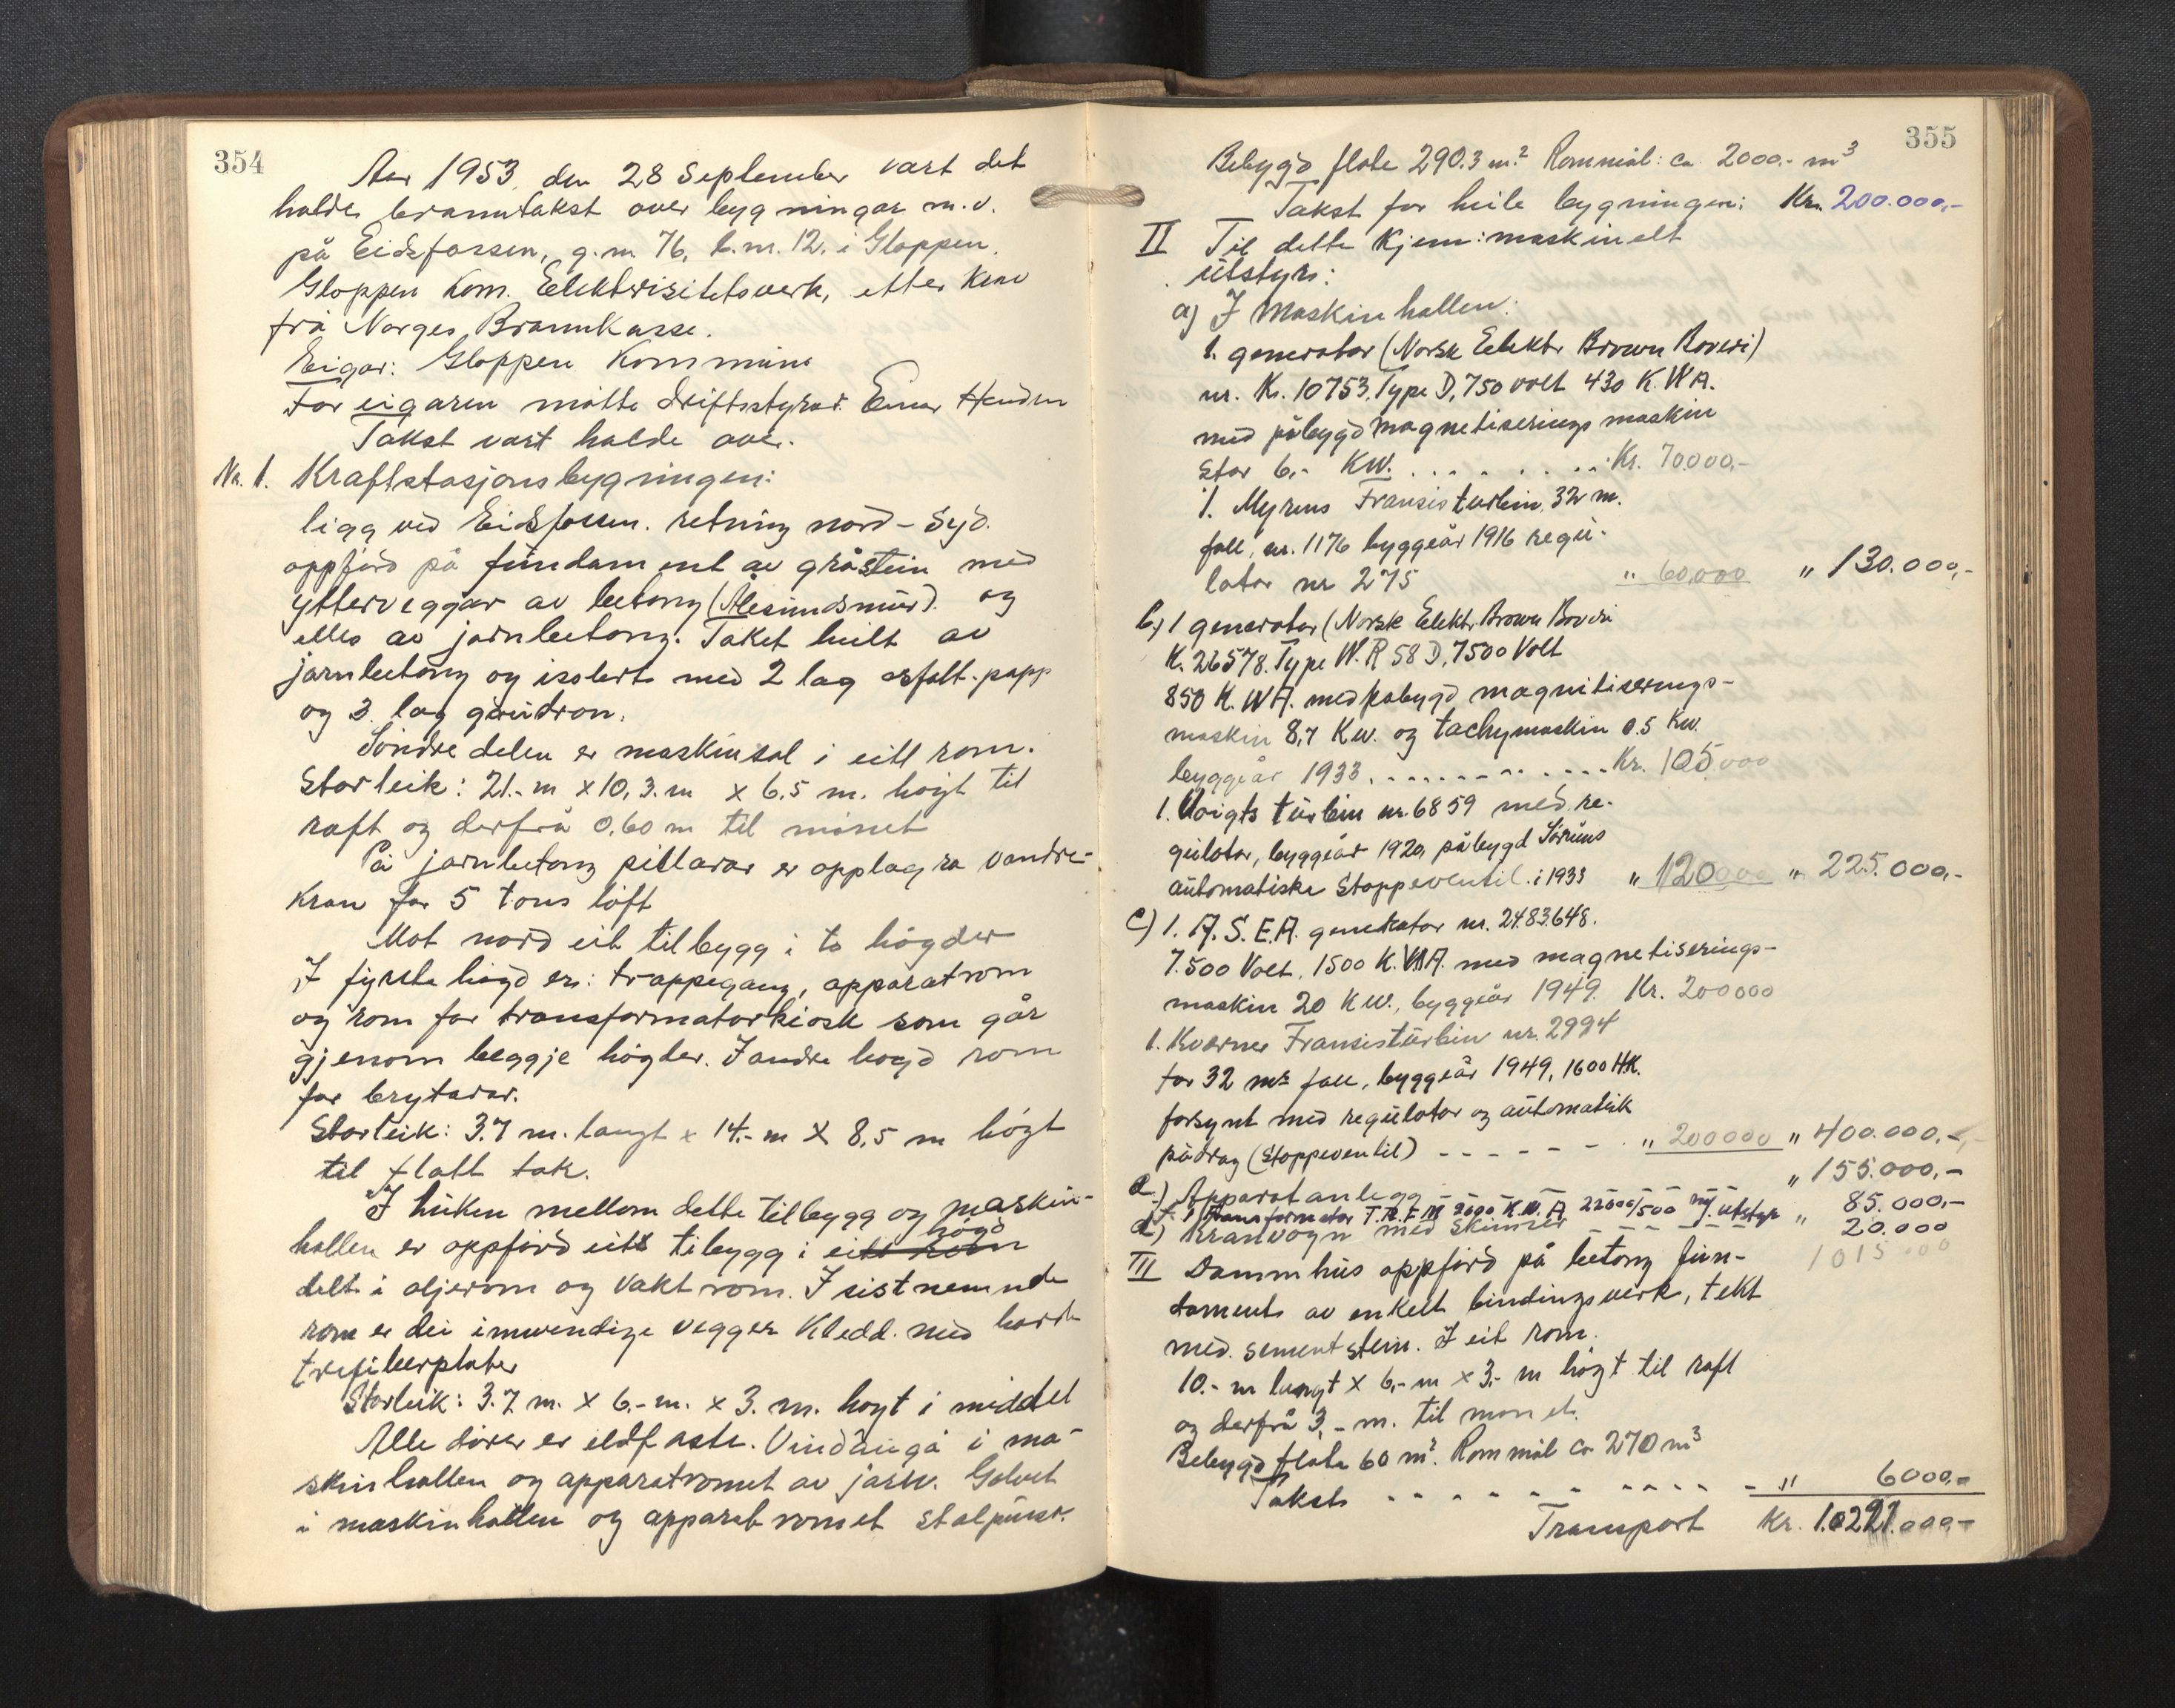 354
Aar 1953, den 28 September vart det
halde branntakst over bygningar m.v.
på Eidsfossen, g.nr. 76, b.nr. 12, i Gloppen
Gloppen Kom. Elektrisitetsverk, etter krav
frå Norges Brannkasse.
Eigar: Gloppen Kommune
For eigaren møtte driftsstyrar Einar
Takst vart halde over.
Nr. 1. Kraftstasjonsbygningen:
ligg ved Eidsfossen. retning nord - Syd.
oppförd på fundament av gråstein med
ytterveggar av betong (Ålesundsmur) og
elles av jarnbetong. Taket heilt av
jarnbetong og isolert med 2 lag asfalt-papp
og 3 lag goudron.
Söndre delen er maskinsal i eitt rom.
Storleik: 21.- m x 10,3. m x 6,5 m. högt til
raft og derfrå 0,60 m til mönet
På jarnbetong pillarar er opplagra vandre-
kran for 5 tons löft
Mot nord eit tilbygg i to högder
I fyrste högd er: trappegang, apparatrom
og rom for transformatorkiosk som går
gjenom beggje högder. I andre högd rom
for brytarar.
Storleik: 3.7 m. langt x 14.- m x 8,5 m högt
til flatt tak.
I huken mellom dette tilbygg og maskin-
högd
hallen er oppförd eitt tilbygg i eitt rom
delt i oljerom og vaktrom. I sistnemnde
rom er dei innvendige vegger kledd med harde
trefiberplater
Storleik: 3.7 m. x 6.- m. x 3. m. högt i middel
Alle dörer er eldfaste. Vindauga i ma-
skinhallen og apparatromet av jarn. Golvet
i maskinhallen og apparatromet stålpuss.
355
Bebygd flate 290.3 m² Rommål: ca. 2000.- m³
Takst for heile bygningen: Kr. 200.000,-
II Til dette kjem: maskinelt
utstyr:
a) I Maskinhallen:
1. generator (Norsk Elektr Brown Boveri)
nr. K. 10753, Type D, 750 volt 430 K.W A.
med påbygd magnetiserings maskin
stor 6,- KW. . . . . . . . Kr. 70.000,-
1. Myrens Fransisturbin, 32 m.
fall, nr. 1176 byggeår 1916 regu-
lator nr 275 " 60.000 " 130.000,-
b) 1 generator (Norsk Elektr. Brown Boveri
K. 26578. Type W. R 58 D, 7500 Volt
850 K. W A. med påbygd magnitiserings-
maskin 8,7 Kw. og tachymaskin 0.5 Kw.
byggeår 1933 . . . . . . . . . . Kr. 105.000
1. Voigts turbin nr. 6859 med re-
gulator, byggeår 1920, påbygd Sörums
automatiske Stoppeventil i 1933 " 120000 " 225.000,-
c) 1. A. S. E. A. generator nr. 2483648.
7.500 Volt, 1500 K. VA. med magnetiserings-
maskin 20 Kw., byggeår 1949. Kr. 200000
1. Kværner Fransisturbin nr. 2994
for 32 m. fall, byggeår 1949, 1600 HK.
forsynt med regulator og automatisk
pådrag (Stoppeventil) - - - - - - " 200000 " 400.000,-
d.) Apparatanlegg " 155.000,-
1 Transformator T.R.F.M 2000 K.W. A 22000/500 m/ utstyr " 85.000,-
d) Kranvogn med skinner - - - - 20.000
1015.000
III Dammhus oppförd på betong fun-
daments av enkelt bindingsverk, tekt
med sementstein. I eit rom.
10.- m langt x 6,- m x 3,- m högt til raft
og derfrå 3,- m. til mönet.
Bebygd flate 60 m². Rommål ca 270 m³
Takst - - - - - - - - - - - " 6000,-
Transport Kr. 1.0221.000,-